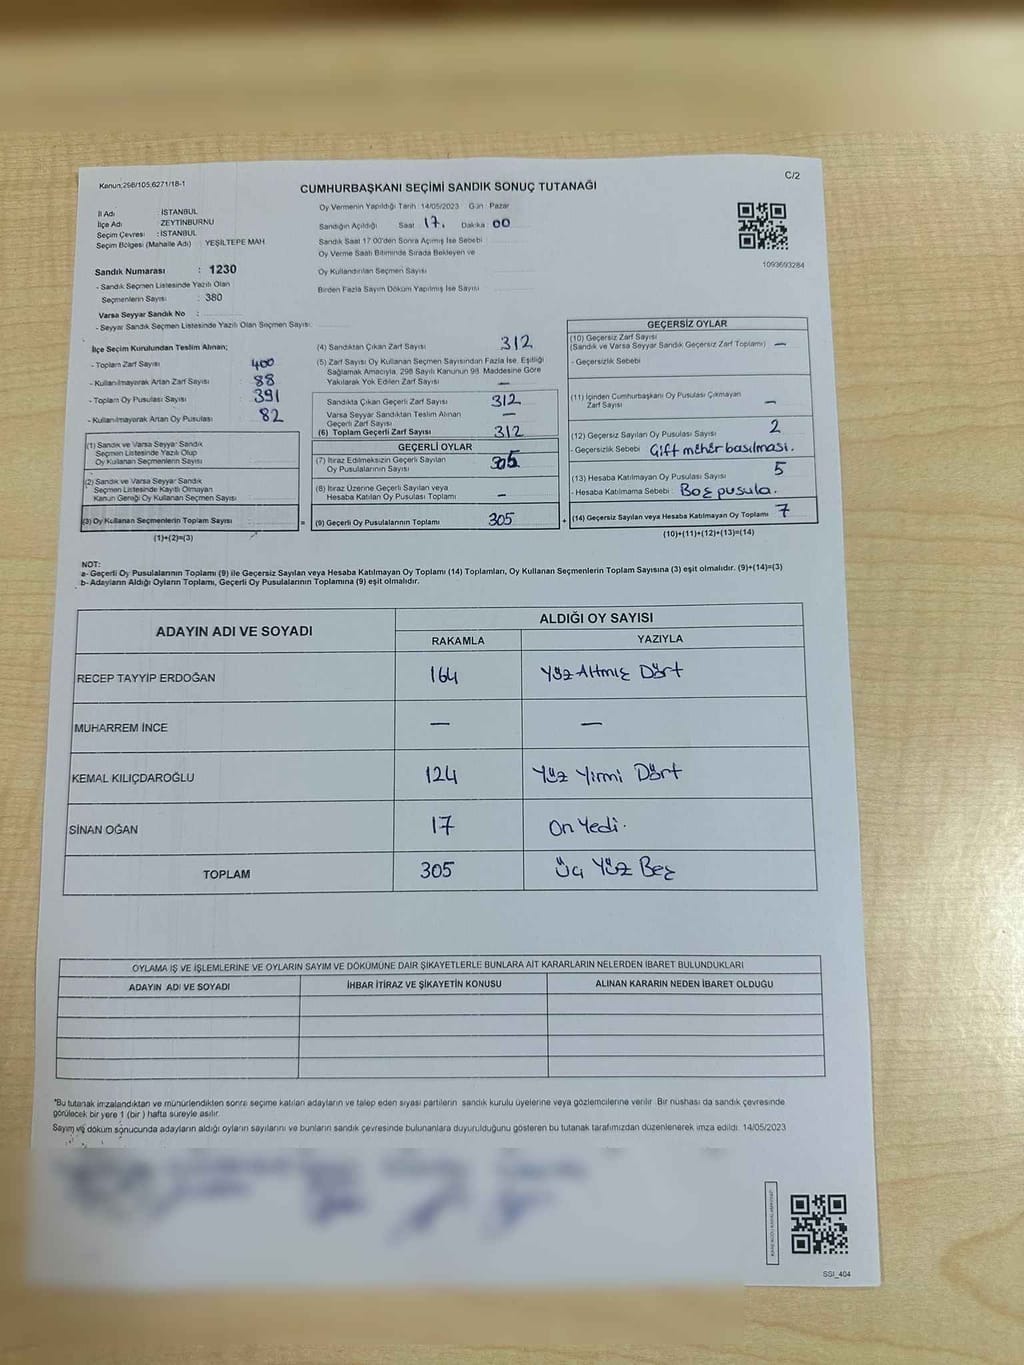 Kanun;298/105;6271/18-1
C/2
CUMHURBAŞKANI SEÇİMİ SANDIK SONUÇ TUTANAĞI
İl Adı : İSTANBUL
İlçe Adı : ZEYTİNBURNU
Seçim Çevresi : İSTANBUL
Seçim Bölgesi (Mahalle Adı) : YEŞİLTEPE MAH
Sandık Numarası : 1230
- Sandık Seçmen Listesinde Yazılı Olan
Seçmenlerin Sayısı : 380
Varsa Seyyar Sandık No :
- Seyyar Sandık Seçmen Listesinde Yazılı Olan Seçmen Sayısı:
Oy Vermenin Yapıldığı Tarih :14/05/2023 Gün : Pazar
Sandığın Açıldığı Saat : 17. Dakika : 00
Sandık Saat 17:00'den Sonra Açımış İse Sebebi
Oy Verme Saati Bitiminde Sırada Bekleyen ve
Oy Kullandırılan Seçmen Sayısı
Birden Fazla Sayım Döküm Yapılmış İse Sayısı
1093693284
İlçe Seçim Kurulundan Teslim Alınan;
- Toplam Zarf Sayısı 400
- Kullanılmayarak Artan Zarf Sayısı 88
- Toplam Oy Pusulası Sayısı 391
- Kullanılmayarak Artan Oy Pusulası 82
(1) Sandık ve Varsa Seyyar Sandık
Seçmen Listesinde Yazılı Olup
Oy Kullanan Seçmenlerin Sayısı
(2) Sandık ve Varsa Seyyar Sandık
Seçmen Listesinde Kayıtlı Olmayan
Kanun Gereği Oy Kullanan Seçmen Sayısı
(3) Oy Kullanan Seçmenlerin Toplam Sayısı =
(1)+(2)=(3)
(4) Sandıktan Çıkan Zarf Sayısı 312
(5) Zarf Sayısı Oy Kullanan Seçmen Sayısından Fazla İse, Eşitliği
Sağlamak Amacıyla, 298 Sayılı Kanunun 98. Maddesine Göre
Yakılarak Yok Edilen Zarf Sayısı —
Sandıkta Çıkan Geçerli Zarf Sayısı 312
Varsa Seyyar Sandıktan Teslim Alınan
Geçerli Zarf Sayısı —
(6) Toplam Geçerli Zarf Sayısı 312
GEÇERLİ OYLAR
(7) İtiraz Edilmeksizin Geçerli Sayılan
Oy Pusulalarının Sayısı 305
(8) İtiraz Üzerine Geçerli Sayılan veya
Hesaba Katılan Oy Pusulası Toplamı —
(9) Geçerli Oy Pusulalarının Toplamı 305 +
GEÇERSİZ OYLAR
(10) Geçersiz Zarf Sayısı
(Sandık ve Varsa Seyyar Sandık Geçersiz Zarf Toplamı) —
- Geçersizlik Sebebi
(11) İçinden Cumhurbaşkanı Oy Pusulası Çıkmayan
Zarf Sayısı —
(12) Geçersiz Sayılan Oy Pusulası Sayısı 2
- Geçersizlik Sebebi Çift mühür basılması.
(13) Hesaba Katılmayan Oy Pusulası Sayısı 5
- Hesaba Katılmama Sebebi : Boş pusula.
(14) Geçersiz Sayılan veya Hesaba Katılmayan Oy Toplamı 7
(10)+(11)+(12)+(13)=(14)
NOT:
a- Geçerli Oy Pusulalarının Toplamı (9) ile Geçersiz Sayılan veya Hesaba Katılmayan Oy Toplamı (14) Toplamları, Oy Kullanan Seçmenlerin Toplam Sayısına (3) eşit olmalıdır. (9)+(14)=(3)
b- Adayların Aldığı Oyların Toplamı, Geçerli Oy Pusulalarının Toplamına (9) eşit olmalıdır.
ADAYIN ADI VE SOYADI ALDIĞI OY SAYISI
RAKAMLA YAZIYLA
RECEP TAYYİP ERDOĞAN 164 Yüz Altmış Dört
MUHARREM İNCE — —
KEMAL KILIÇDAROĞLU 124 Yüz Yirmi Dört
SİNAN OĞAN 17 On Yedi.
TOPLAM 305 Üç Yüz Beş
OYLAMA İŞ VE İŞLEMLERİNE VE OYLARIN SAYIM VE DÖKÜMÜNE DAİR ŞİKAYETLERLE BUNLARA AİT KARARLARIN NELERDEN İBARET BULUNDUKLARI
ADAYIN ADI VE SOYADI İHBAR İTİRAZ VE ŞİKAYETİN KONUSU ALINAN KARARIN NEDEN İBARET OLDUĞU
*Bu tutanak imzalandıktan ve mühürlendikten sonra seçime katılan adayların ve talep eden siyasi partilerin sandık kurulu üyelerine veya gözlemcilerine verilir. Bir nüshası da sandık çevresinde
görülecek bir yere 1 (bir ) hafta süreyle asılır.
Sayım ve döküm sonucunda adayların aldığı oyların sayılarını ve bunların sandık çevresinde bulunanlara duyurulduğunu gösteren bu tutanak tarafımızdan düzenlenerek imza edildi. 14/05/2023
SSI_404